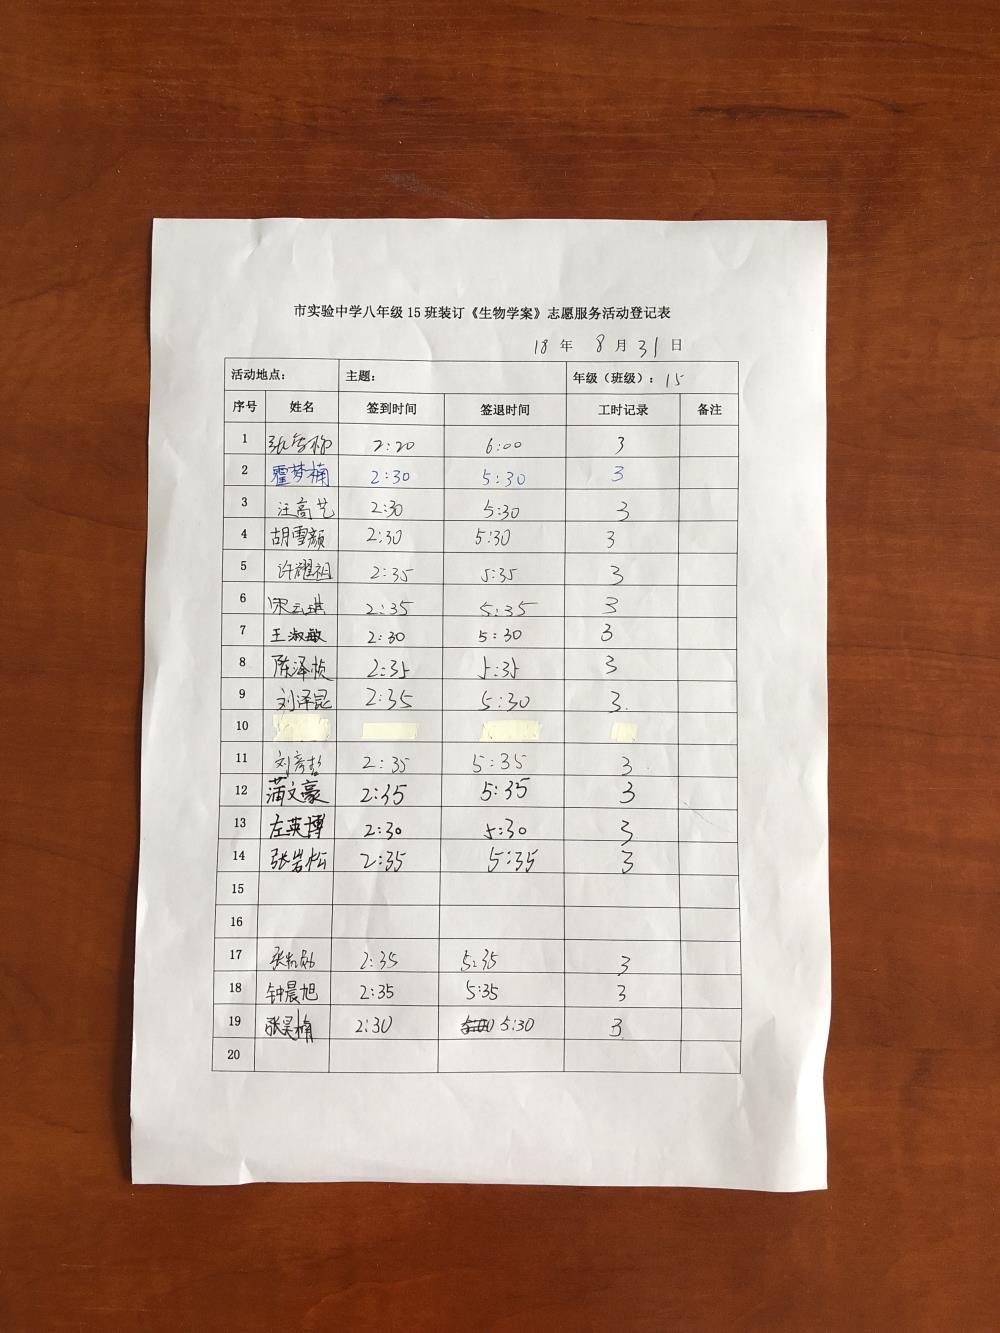 市实验中学八年级 15 班装订《生物学案》志愿服务活动登记表
18 年 8 月 31 日
活动地点： 主题： 年级（班级）：15
序号 姓名 签到时间 签退时间 工时记录 备注
1 2:20 6:00 3
2 霍梦楠 2:30 5:30 3
3 汪高艺 2:30 5:30 3
4 胡雪颜 2:30 5:30 3
5 许耀祖 2:35 5:35 3
6 宋云琪 2:35 5:35 3
7 王淑敏 2:30 5:30 3
8 陈泽桢 2:35 5:35 3
9 刘泽昆 2:35 5:30 3.
10
11 刘彦哲 2:35 5:35 3
12 蒲文豪 2:35 5:35 3
13 左英博 2:30 5:30 3
14 张岩松 2:35 5:35 3
15
16
17 2:35 5:35 3
18 钟晨旭 2:35 5:35 3
19 张昊楠 2:30 5:30 3
20